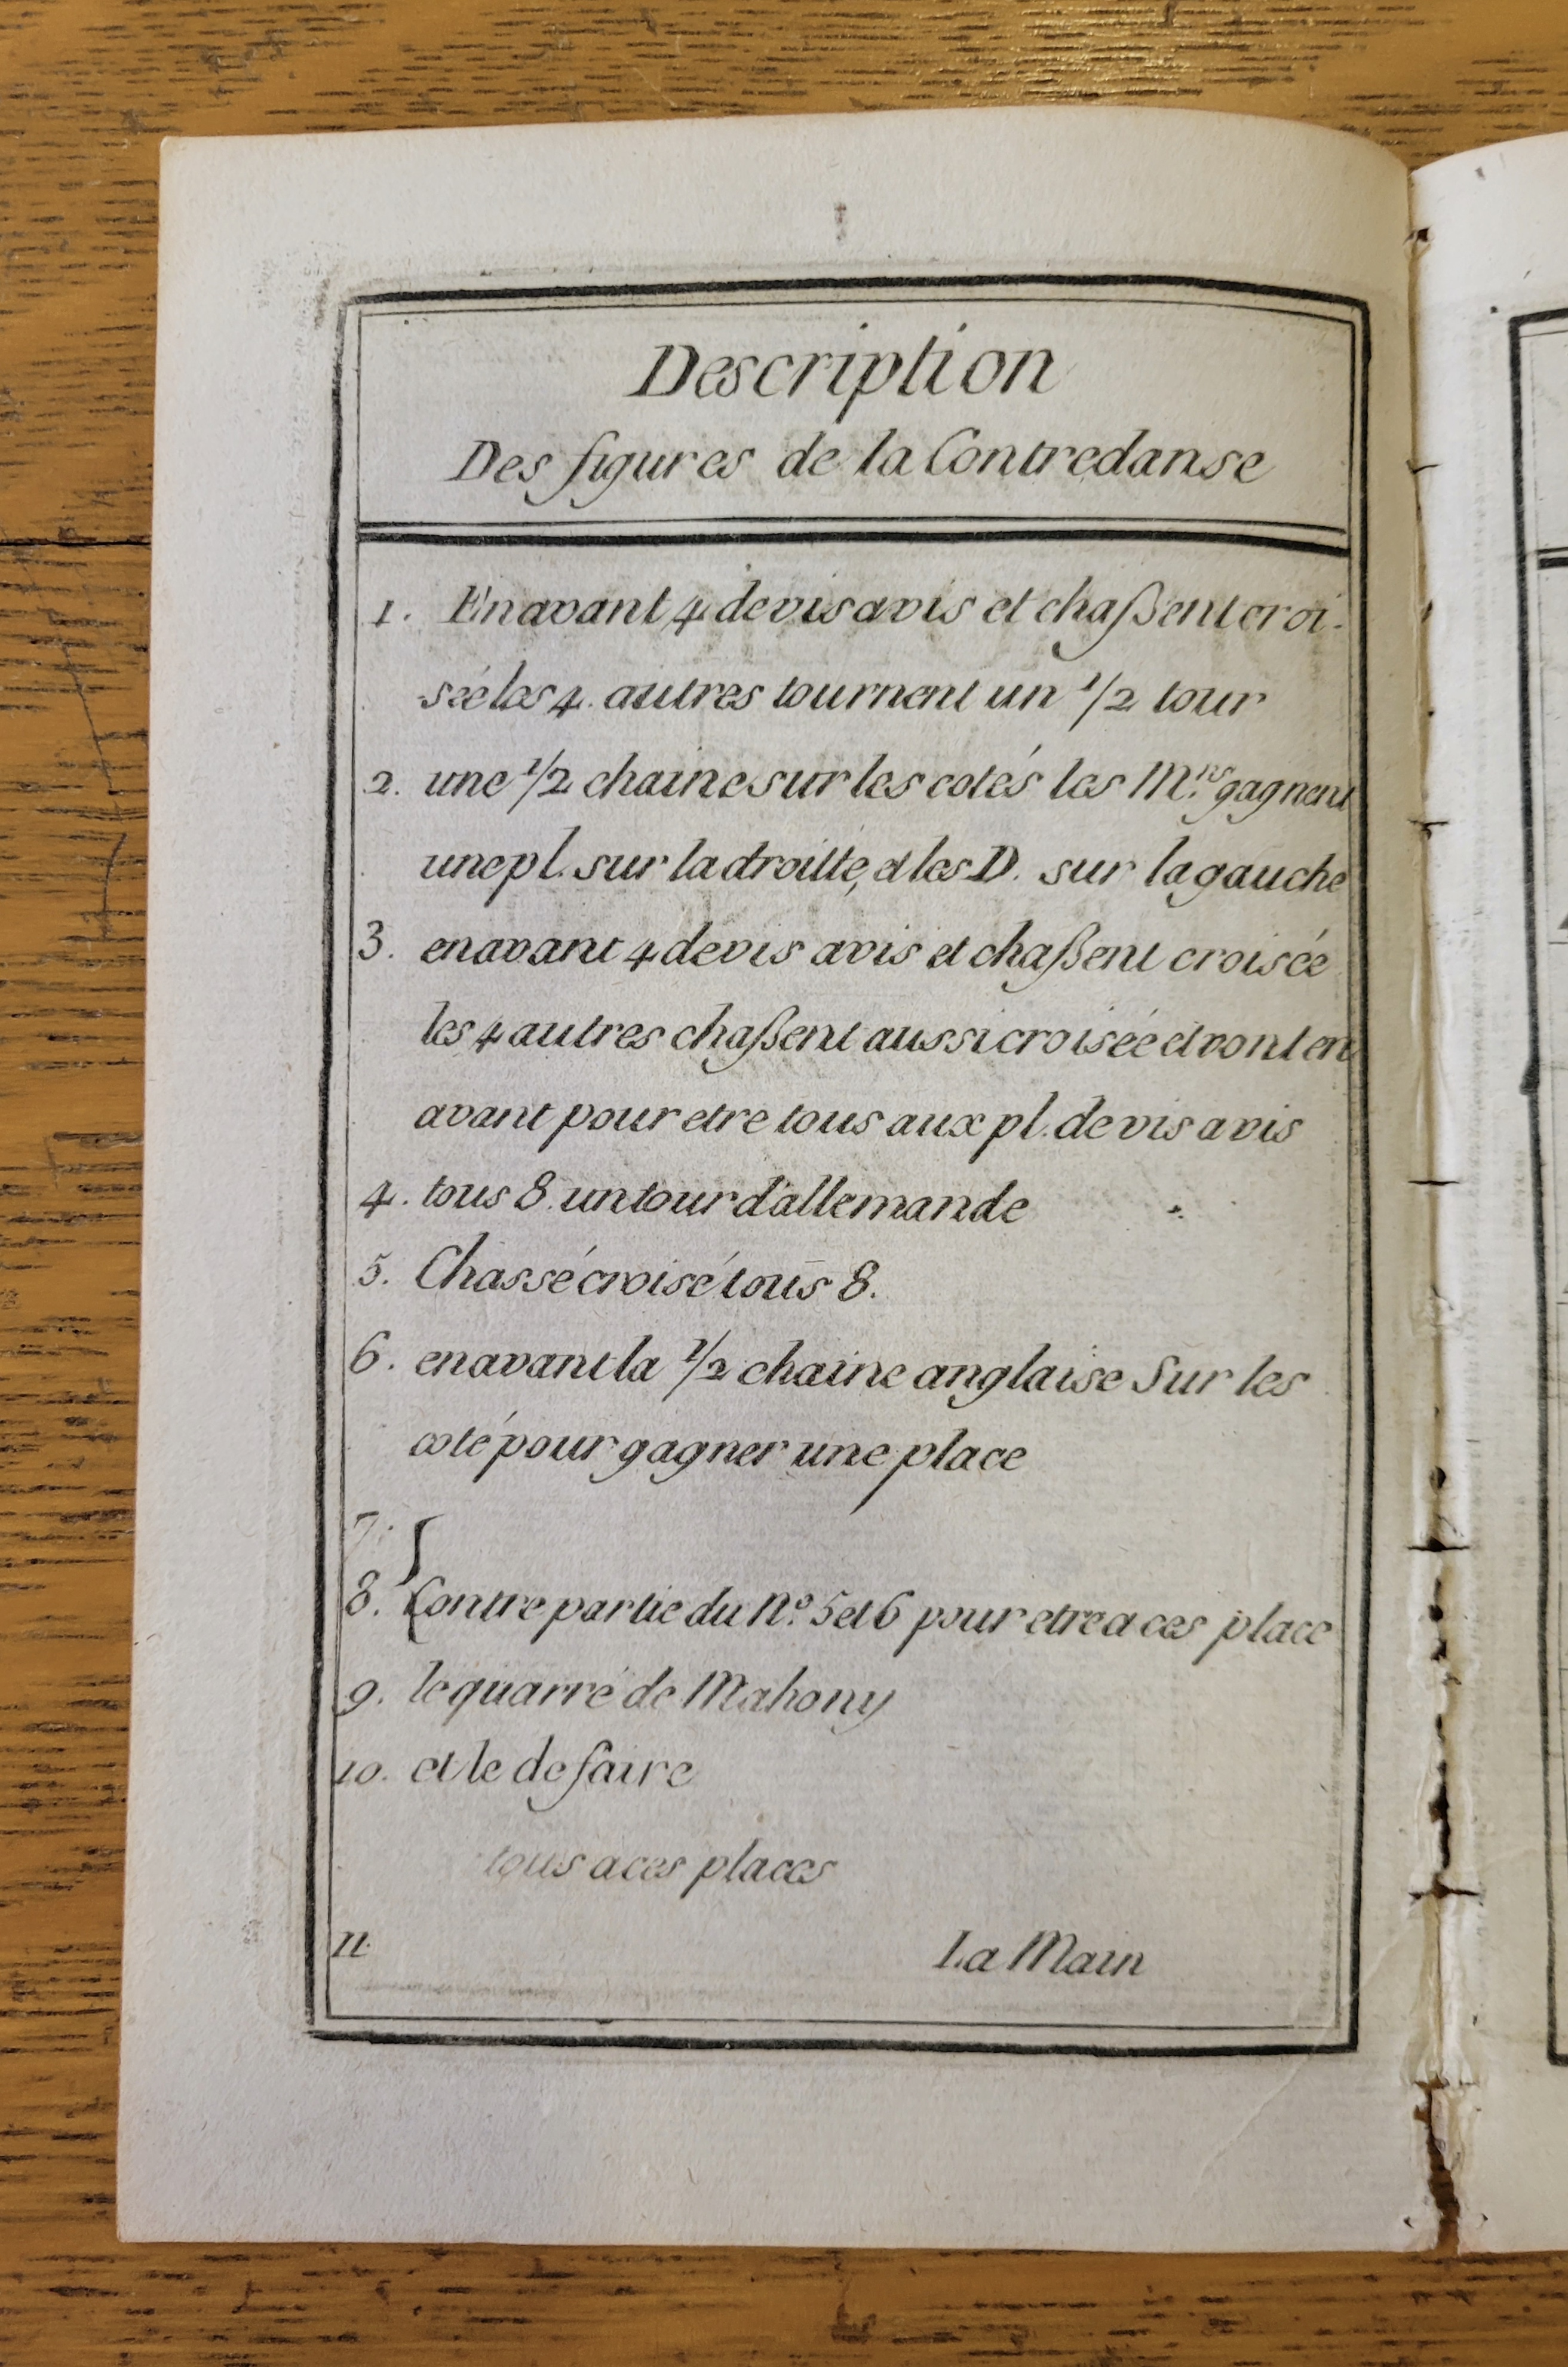 Description
Des figures de la Contredanse
1. En avant 4 de vis a vis et chaßent croi-
sée les 4. autres tournent un 1/2 tour
2. une 1/2 chaine sur les cotés les M.rs gagnent
une pl. sur la droitte, et les D. sur la gauche
3. en avant 4 de vis a vis et chaßent croisée
les 4 autres chaßent aussi croisée et vont en
avant pour etre tous aux pl. de vis a vis
4. tous 8. un tour d'allemande
5. Chassé croisé tous 8.
6. en avant la 1/2 chaine anglaise Sur les
coté pour gagner une place
7. {
8. Contre partie du N.º 5 et 6 pour etre a ces place
9. le quarré de Mahony
10. et le defaire
tous a ces places
11. La Main